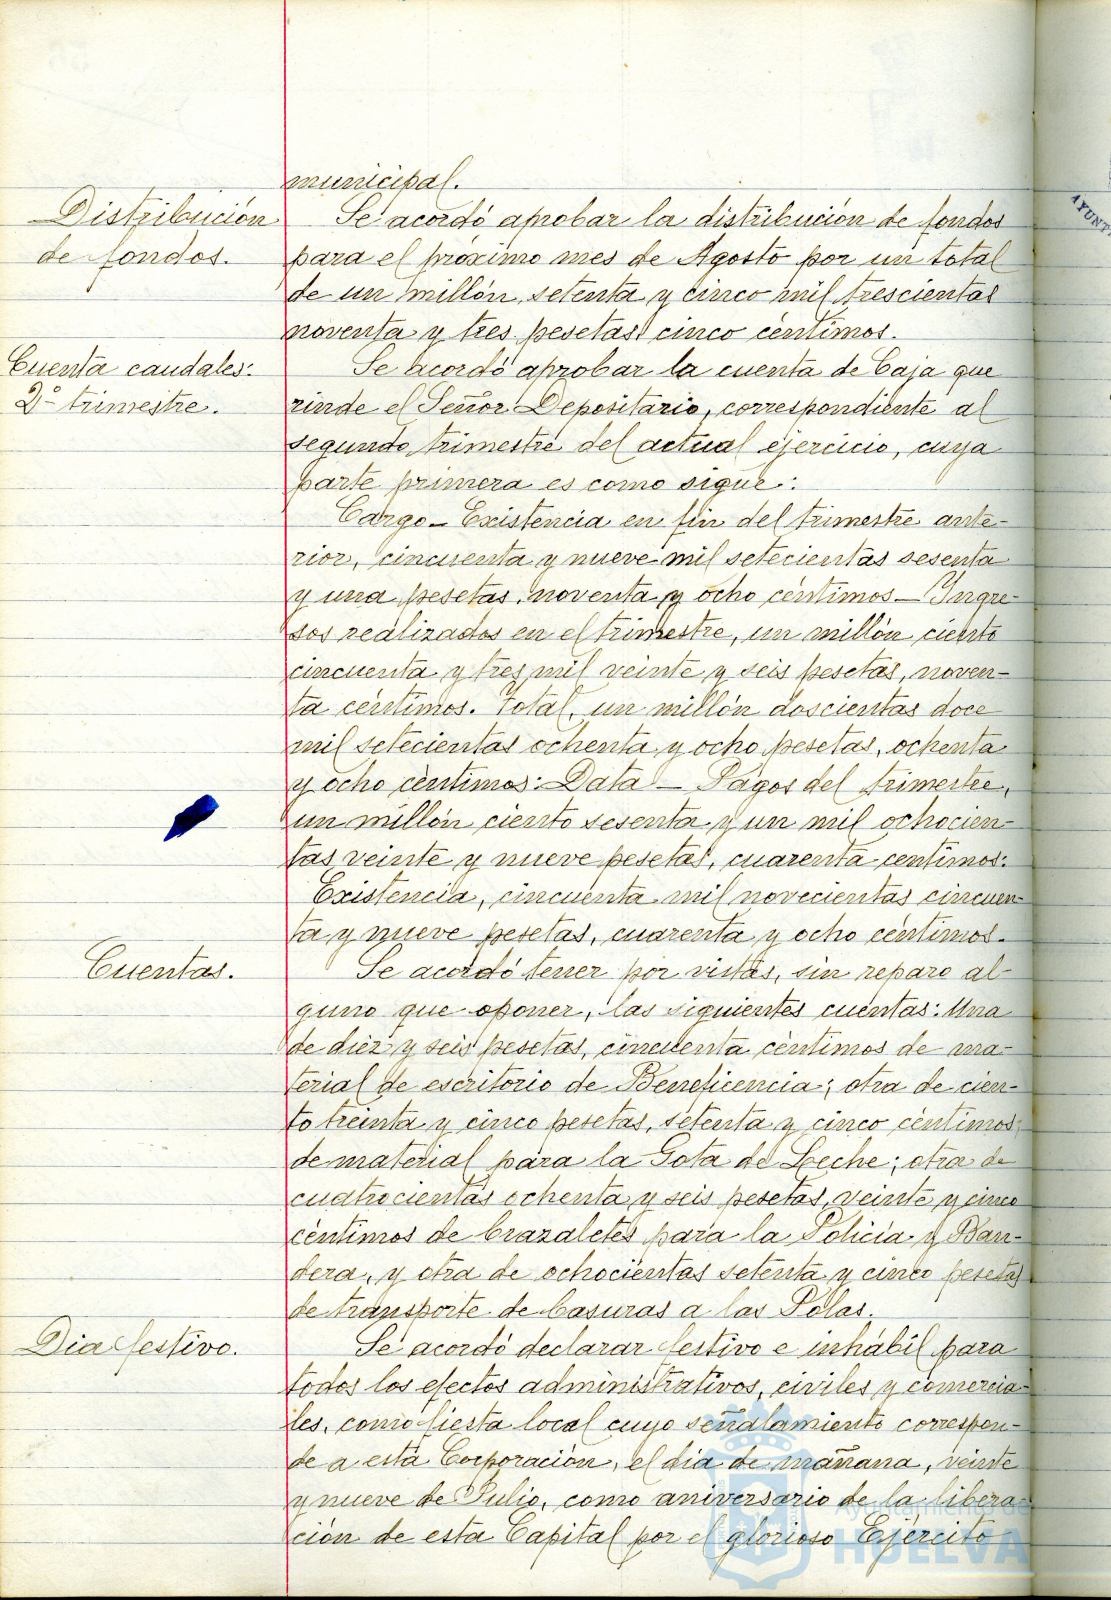 municipal.
Distribución
de fondos.
Se acordó aprobar la distribución de fondos
para el próximo mes de Agosto por un total
de un millón, setenta y cinco mil trescientas
noventa y tres pesetas cinco céntimos.
Cuenta caudales:
2º trimestre.
Se acordó aprobar la cuenta de Caja que
rinde el Señor Depositario, correspondiente al
segundo trimestre del actual ejercicio, cuya
parte primera es como sigue:
Cargo — Existencia en fin del trimestre ante-
rior, cincuenta y nueve mil setecientas sesenta
y una pesetas, noventa y ocho céntimos — Ingre-
sos realizados en el trimestre, un millón ciento
cincuenta y tres mil veinte y seis pesetas, noven-
ta céntimos. Total, un millón doscientas doce
mil setecientas ochenta y ocho pesetas, ochenta
y ocho céntimos: Data — Pagos del trimestre,
un millón ciento sesenta y un mil ochocien-
tas veinte y nueve pesetas, cuarenta centimos:
Existencia, cincuenta mil novecientas cincuen-
ta y nueve pesetas, cuarenta y ocho céntimos.
Cuentas.
Se acordó tener por vistas, sin reparo al-
guno que oponer, las siguientes cuentas: Una
de diez y seis pesetas, cincuenta céntimos de ma-
terial de escritorio de Beneficencia; otra de cien-
to treinta y cinco pesetas, setenta y cinco céntimos,
de material para la Gota de Leche; otra de
cuatrocientas ochenta y seis pesetas, veinte y cinco
céntimos de brazaletes para la Policía y Ban-
dera, y otra de ochocientas setenta y cinco pesetas
de transporte de basuras a las Polas.
Dia festivo.
Se acordó declarar festivo e inhábil para
todos los efectos administrativos, civiles y comercia-
les, como fiesta local cuyo señalamiento correspon-
de a esta Corporación, el dia de mañana, veinte
y nueve de Julio, como aniversario de la libera-
ción de esta Capital por el glorioso Ejército
Ayuntamiento de
HUELVA